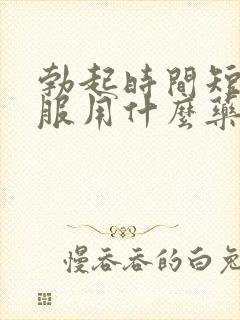 勃起時間短
服用什麼藥
慢吞吞的白兔